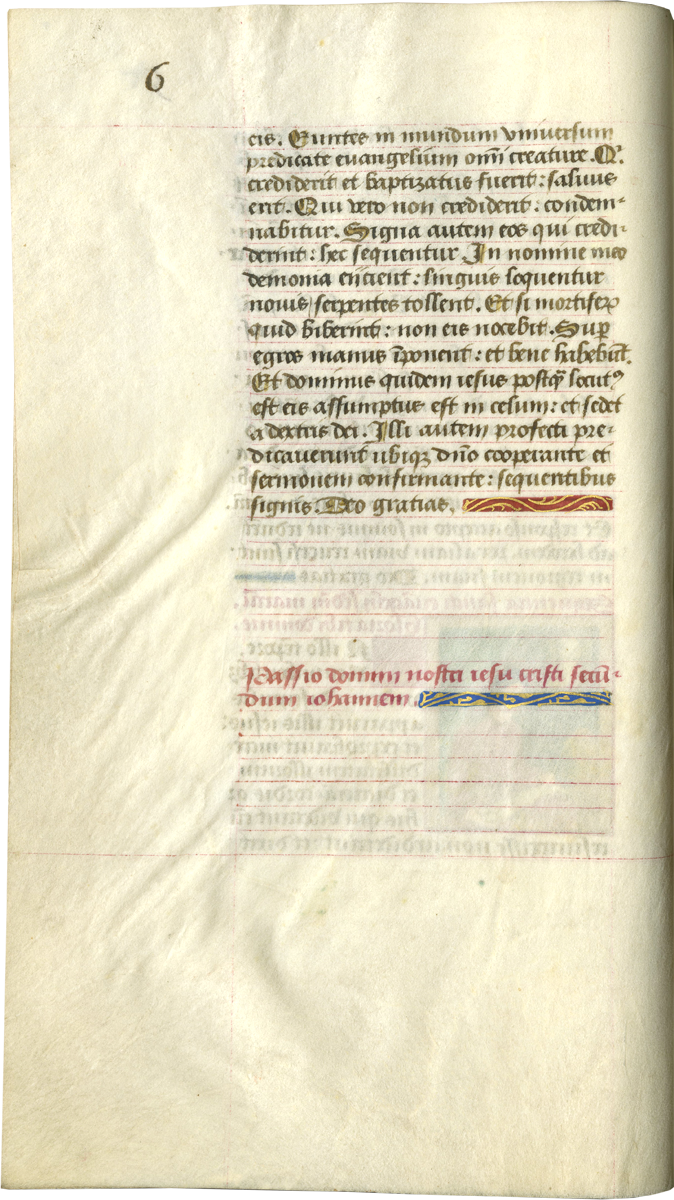 6
eis. Euntes in mundum vniuersum
predicate euangelium om̄i creature. Q'
crediderit et baptizatus fuerit: saluus
erit. Qui vero non crediderit: condem-
nabitur. Signa autem eos qui credi-
derint: hec sequentur. In nomine meo
demonia eiicient: linguis loquentur
nouis serpentes tollent. Et si mortiferꝝ
quid biberint: non eis nocebit. Sup̄
egros manus īponent: et bene habebūt.
Et dominus quidem iesus postq̄ᷓ locutꝰ
est eis assumptus est in celum: et sedet
a dextris dei. Illi autem profecti pre-
dicauerunt ubiqꝫ dn̄o cooperante et
sermonem confirmante: sequentibus
signis. Deo gratias.
Passio domini nostri iesu cristi secū-
dum iohannem.